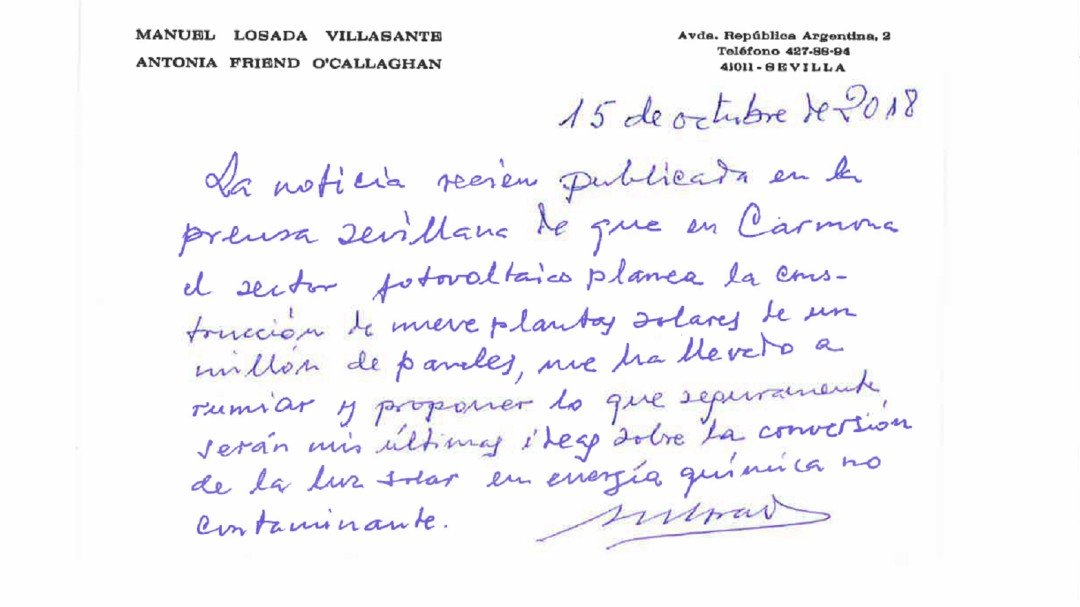 MANUEL LOSADA VILLASANTE
ANTONIA FRIEND O'CALLAGHAN
Avda. República Argentina, 2
Teléfono 427-88-94
41011 - SEVILLA
15 de octubre de 2018
La noticia recién publicada en la
prensa sevillana de que en Carmona
el sector fotovoltaico planea la cons-
trucción de nueve plantas solares de un
millón de paneles, me ha llevado a
rumiar y proponer lo que seguramente
serán mis últimas ideas sobre la conversión
de la luz solar en energía química no
contaminante.